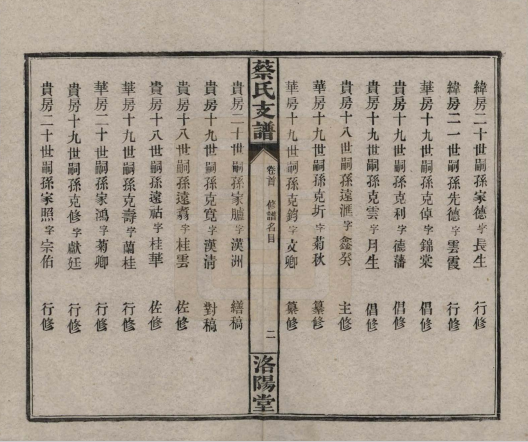 緯房二十世嗣孫家德字長生 行修
緯房二一世嗣孫先德字雲霞 行修
華房十九世嗣孫克倬字錦棠 倡修
貴房十九世嗣孫克利字德藩 倡修
貴房十九世嗣孫克雲字月生 倡修
貴房十八世嗣孫遠滙字鑫癸 主修
華房十九世嗣孫克圻字菊秋 纂修
華房十九世嗣孫克鈞字文卿 纂修
蔡氏支譜 卷首 修譜名目 二 洛陽堂
貴房二十世嗣孫家臚字漢洲 繕稿
貴房十九世嗣孫克寬字漢清 對稿
貴房十八世嗣孫遠翥字桂雲 佐修
貴房十八世嗣孫遠祜字桂華 佐修
華房十九世嗣孫克壽字蘭桂 行修
華房二十世嗣孫家鴻字菊卿 行修
貴房十九世嗣孫克修字獻廷 行修
貴房二十世嗣孫家照字宗伯 行修